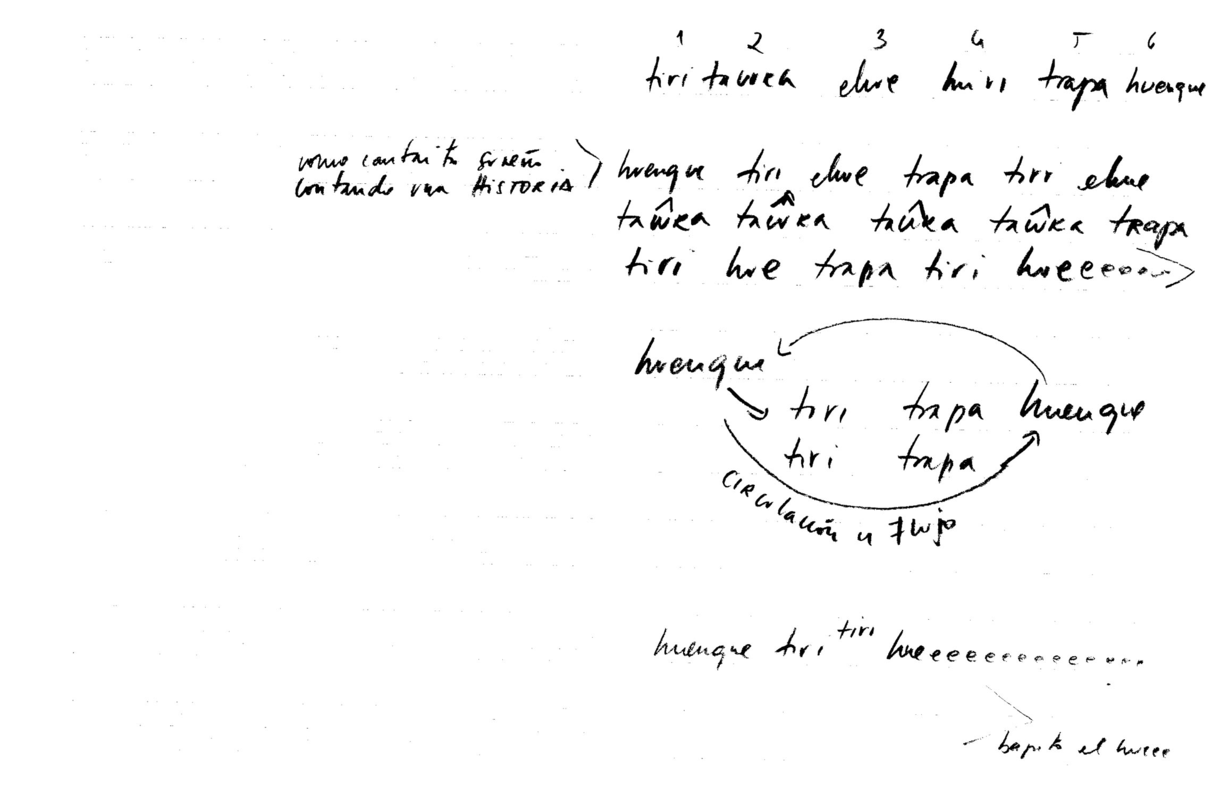 1 2 3 4 5 6
tiri tawka elue huiri trapa huenque
como cantaito
contando una HISTORIA
huenque tiri elue trapa tiri elue
taŵka taŵka taŵka taŵka trapa
tiri hue trapa tiri hueeeooo
huenque
tiri trapa huenque
tiri trapa
CIRculación u Flujo
huenque tiri tiri hueeeeeeeeeeee....
- bajito el hueee